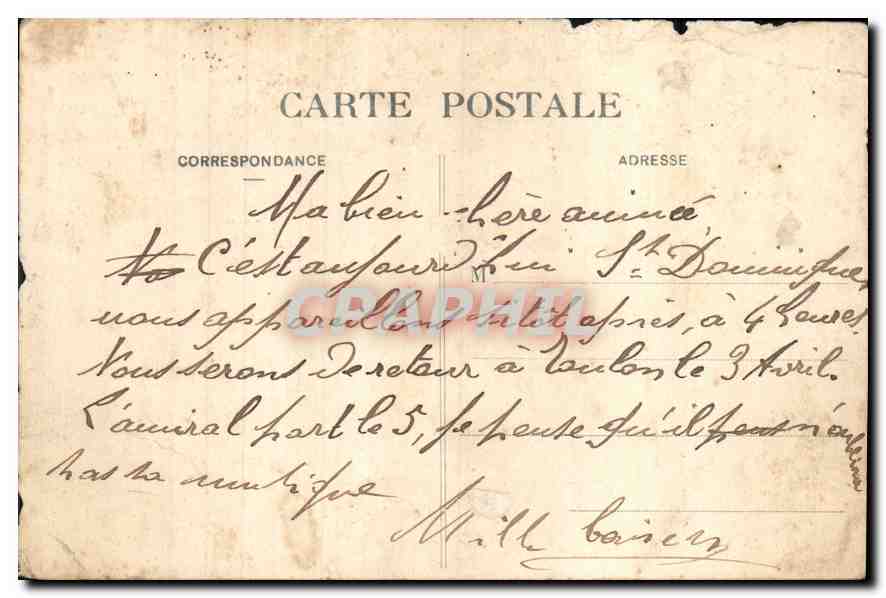 CARTE POSTALE
CORRESPONDANCE
ADRESSE
Ma bien chère aimée
C'est aujourd'hui St Dominique,
M
nous appareillons sitôt après, à 4 heures.
Nous serons de retour à Toulon le 3 Avril.
L'amiral part le 5, je pense qu'il n'oubliera
pas sa musique
Mille baisers
CPAPHIL